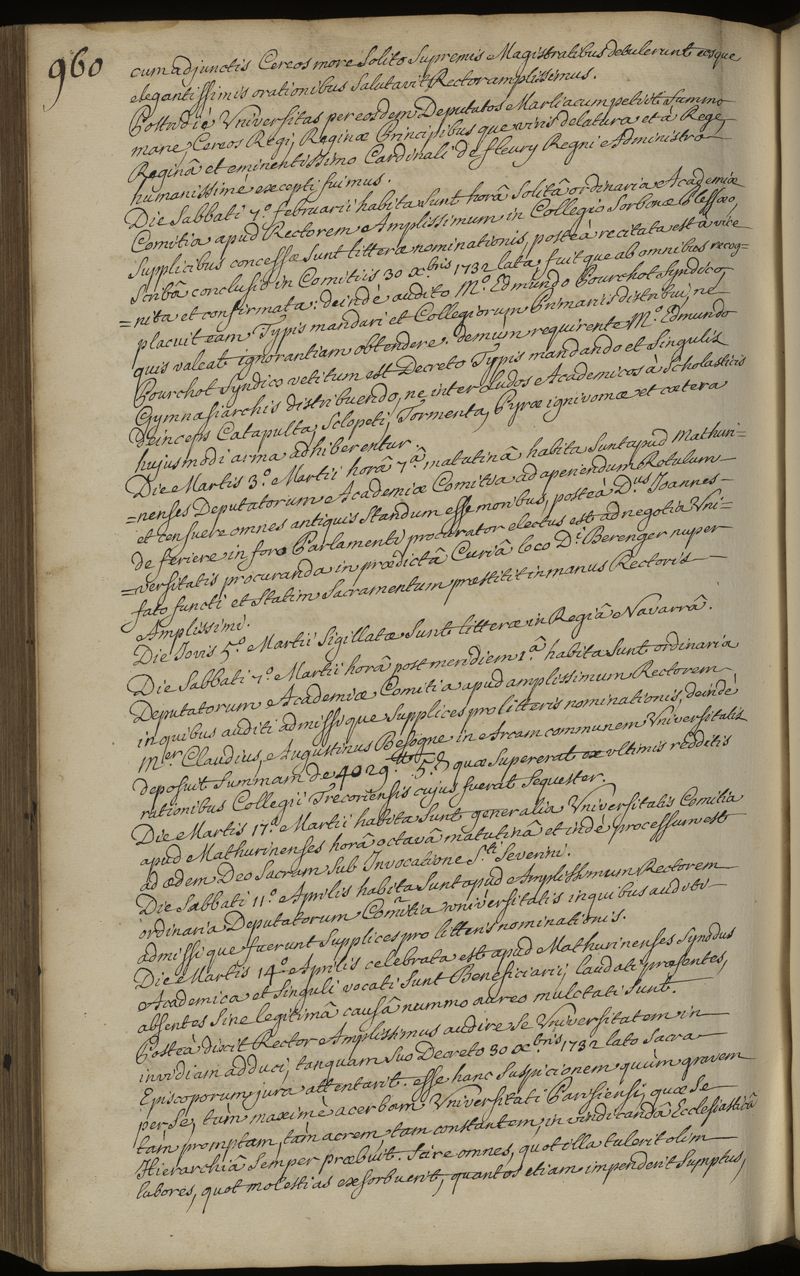 960
cum adjunctis Cereos more solito Supremis Magistratibus detulerunt eosque
elegantissimis orationibus salutavit Rector amplissimus.
Postridie Universitas per eosdem Deputatos Marliacum petiit summo
mane, Cereos Regi, Reginæ Principibusque viris delatura et à Rege,
Reginâ et eminentissimo Cardinali de fleury Regni Administro
humanissime excepti fuimus.
Die Sabbati 7.º februarii habita sunt horâ solitâ ordinaria Academiæ
Comitia apud Rectorem Amplissimum in Collegio Sorbonæ Plessæo,
supplicibus concessæ sunt litteræ nominationis, posteà recitata est à vice
scribâ conclusio in Comitiis 30 Xbris 1732 lata, fuitque ab omnibus recog=
=nita et confirmata: deindè audito M.º Edmundo Pourchot Syndico,
placuit eam Typis mandari et Collegiorum Primariis distribui, ne
quis valeat ignorantiam obtendere. demum requirente M.º Edmundo
Pourchot Syndico vetitum est Decreto Typis mandando et singulis
Gymnasiarchis distribuendo, ne inter ludos Academicos à Scholasticis
deinceps Catapulta, Sclopeti, Tormenta, Pyræ ignivomæ et cætera
hujusmodi arma adhiberentur.
Die Martis 3.º Martii horâ 7.ª matutinâ habita sunt apud Mathuri=
=nenses Deputatorum Academiæ Comitia ad aperiendum Rotulum
et censuere omnes antiquis standum esse moribus, posteà D.us Joannes
de feriere in foro Parlamenti procurator electus est ad negotia Uni=
=versitatis procuranda in prædictâ Curiâ loco D.i Berenger nuper
fato functi et statim Sacramentum præstitit in manus Rectoris
Amplissimi.
Die Jovis 5.º Martii sigillatæ sunt litteræ in Regiâ Navarrâ.
Die Sabbati 7.º Martii horâ post meridiem 1.ª habita sunt ordinaria
Deputatorum Academiæ Comitia apud amplissimum Rectorem
in quibus auditi admissique supplices pro litteris nominationis, deindè
M.er Claudius, Augustinus Besogne in Arcam communem Universitatis
deposuit summam de 4029.lt 5.s quæ supererat ex ultimis redditis
rationibus Collegii Trecoriensis cujus fuerat sequester.
Die Martis 17.º Martii habita sunt generalia Universitatis Comitia
apud Mathurinenses horâ octavâ matutinâ et indè processum est
ad ædem Deo Sacram sub Invocatione S.ti Severini.
Die Sabbati 11.º Aprilis habita sunt apud Amplissimum Rectorem
ordinaria Deputatorum Comitia universitatis in quibus auditi
admissique fuerunt supplices pro litteris nominationis.
Die Martis 14.º Aprilis celebrata est apud Mathurinenses Synodus
Academica et singuli vocati sunt Beneficiarii, laudati præsentes,
absentes sine legitimâ causâ nummo aureo mulctati sunt.
Posteà dixit Rector Amplissimus audire se Universitatem in
invidiam adduci, tanquam suo Decreto 30 Xbris 1732 lato sacra
Episcoporum jura attentarit. esse hanc suspicionem quùm gravem
per se, tùm maximè acerbam Universitati Parisiensi, quæ se
tàm promptam, tàm acrem, tam constantem, in vindicandâ Ecclesiasticâ
Hierarchiâ semper præbuit. scire omnes, quot illa tulerit olim
labores, quot molestias exsorbuerit, quantos etiam impenderit sumptus,